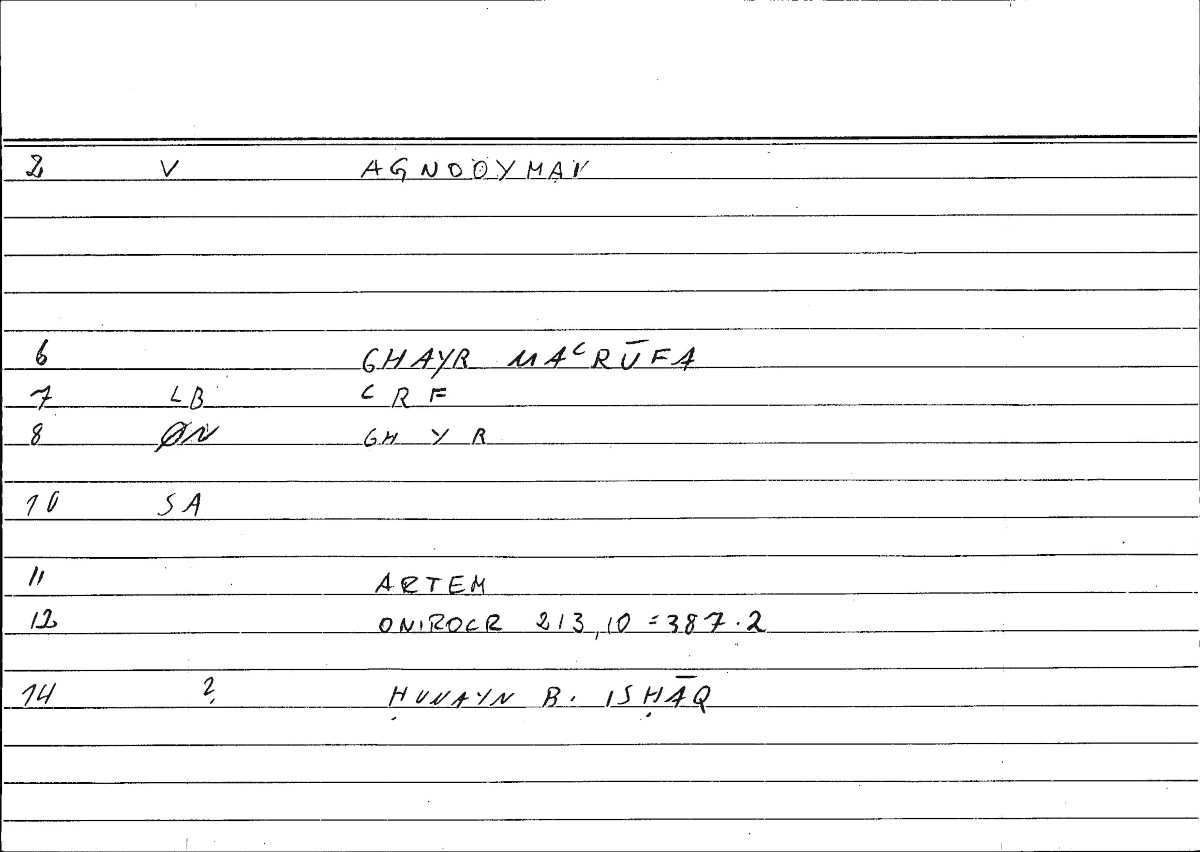 2 V AGNOOYMAN
6 GHAYR MAᶜRŪFA
7 LB ᶜRF
8 ØN GHYR
10 SA
11 ARTEM
12 ONIROCR 213,10=387.2
14 ? ḤUNAYN B. ISḤĀQ